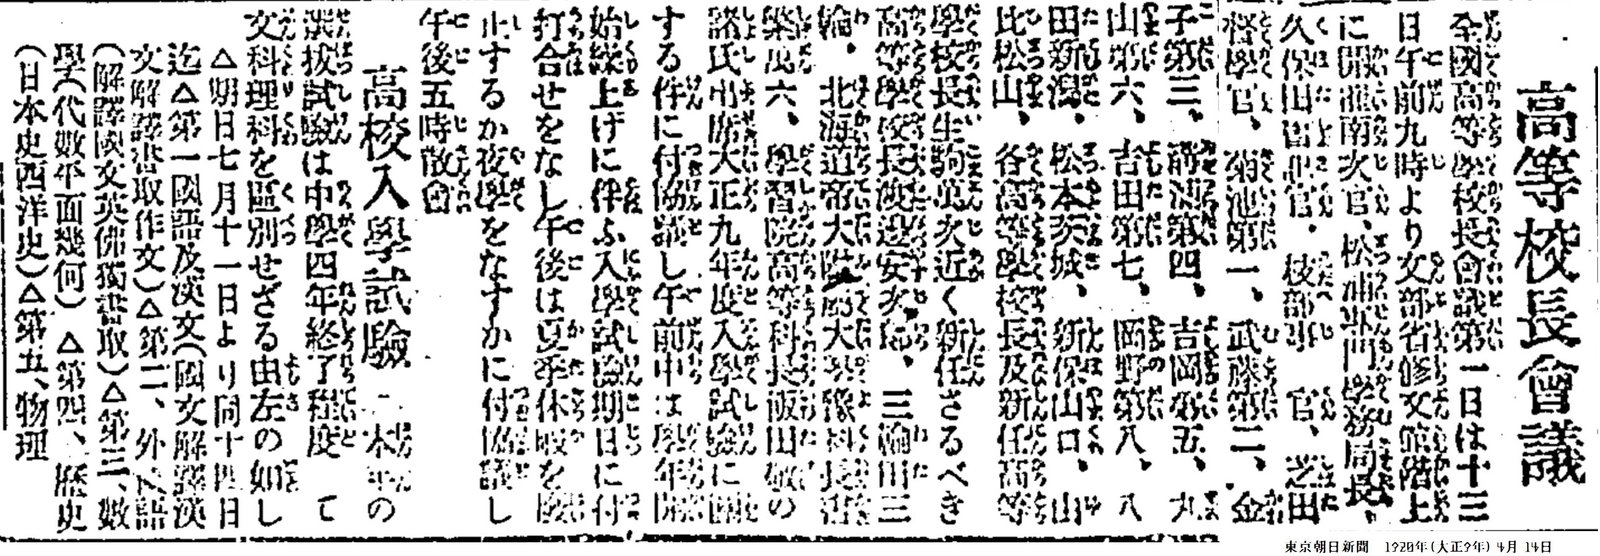 高等校長會議
全國高等學校長會議第一日は十三
日午前九時より文部省修文館階上
に開催南次官、松浦專門學務局長、
久保田書記官、枝部事 官、芝田
督學官、菊池第一、武藤第二、金
子第三、前浦第四、吉岡第五、丸
山第六、吉田第七、岡野第八、八
田新潟、松本茨城、新保山口、山
比松山、各高等學校長及新任高等
學校長生駒萬次近く新任さるべき
高等學校長渡邊安次郎、三輪田三
輪、北海道帝大附屬大學豫科長
樂萬六、學習院高等科長飯田敏の
諸氏出席大正九年度入學試驗に關
する件に付協議し午前中は學年開
始繰上げに伴ふ入學試驗期日に付
打合せをなし午後は夏季休暇を廢
止するか夜學をなすかに付協議し
午後五時散會
高校入學試驗 本年の
選拔試驗は中學四年終了程度 て
文科理科を區別せざる由左の如し
△期日七月十一日より同十四日
迄△第一國語及漢文(國文解釋漢
文解釋書取作文)△第二、外國語
(解譯國文英佛獨書取)△第三、數
學(代數平面幾何)△第四、歷史
(日本史西洋史)△第五、物理
東京朝日新聞 1920年(大正9年)4月 14日